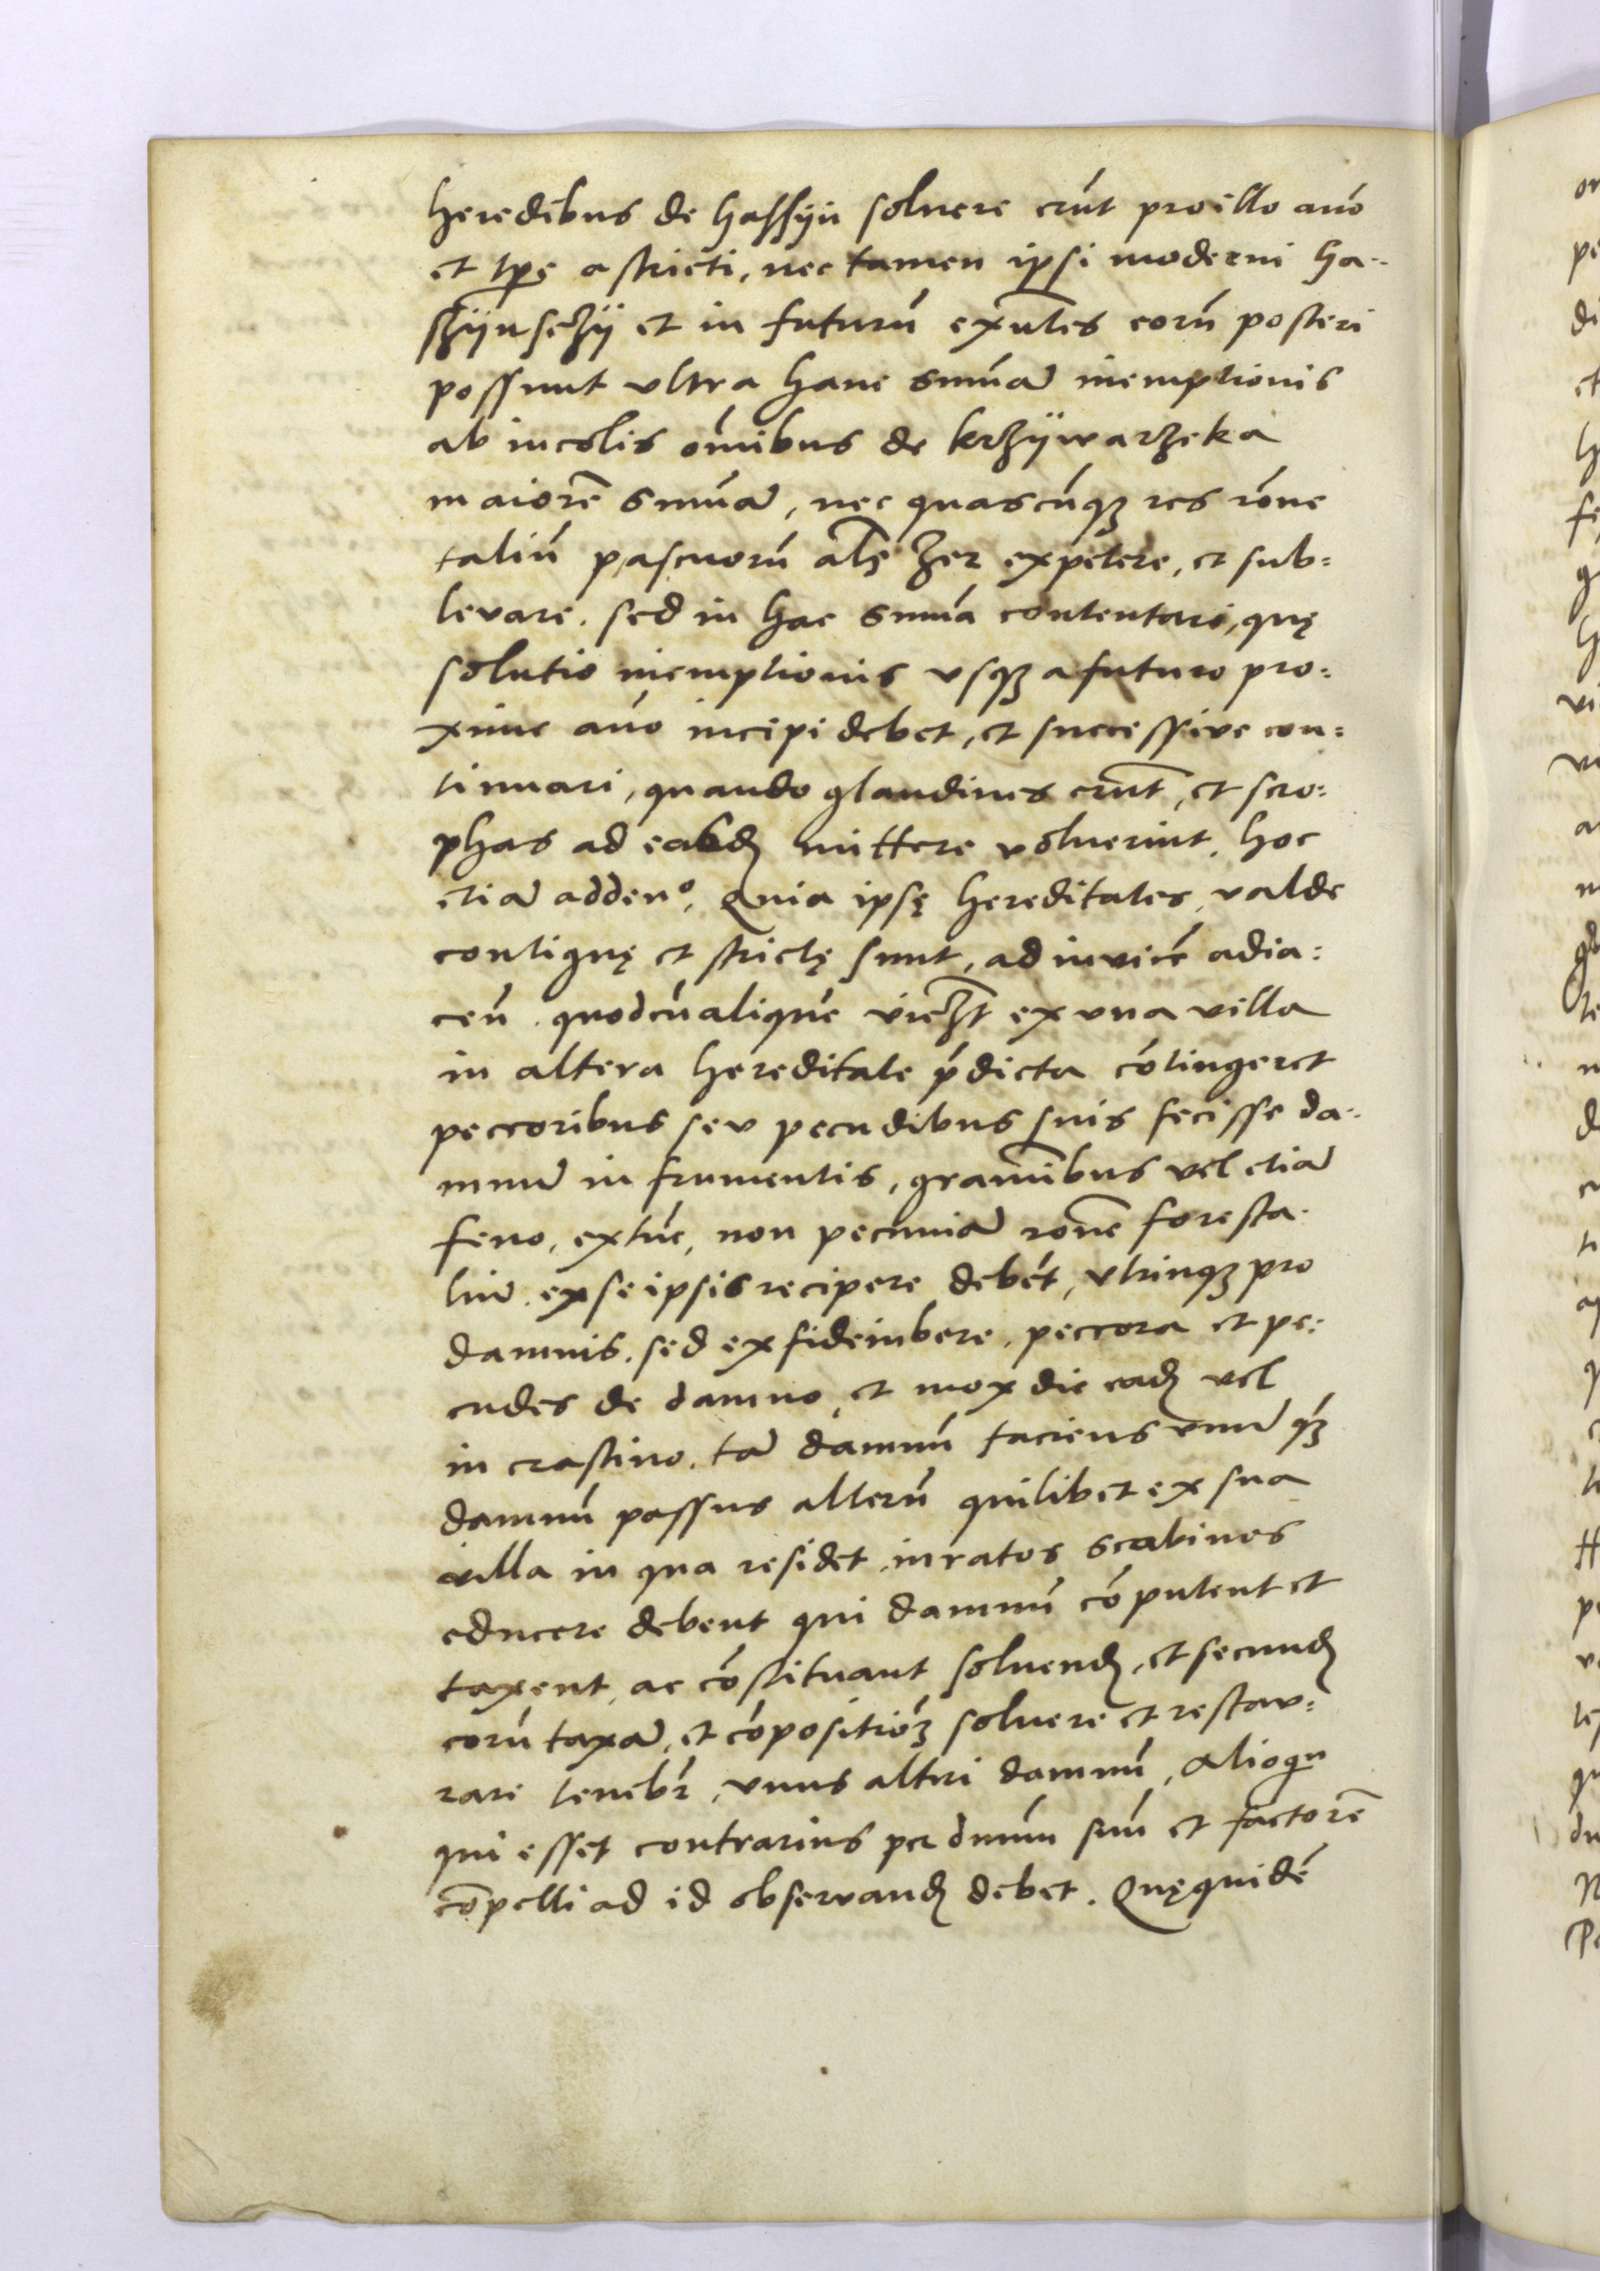 heredibus de hassyn soluere erūt pro illo āno
et tp̄e astricti, nec tamen ipsi moderni ha-
szÿnsczÿ et in futurū exn̄tes eorū posteri
possunt vltra hanc sūmā inemptionis
ab incolis oīnibus de krzÿwarzeka
maiorē sūmā, nec quascūqꝫ res rōne
taliū pascuorū al̄s Zer expetere, et sub:
leuare. sed in hac sūma contentari, quę
solutio inemptionis vsqꝫ a futuro pro:
xime āno incipi debet, et successive con:
tinuari, quando glandines erūnt, et scro:
phas ad easdē mittere voluerint. hoc
etiā addenº, Quia ipsę hereditates, valde
contiguę et strictę sunt, ad inuicē adia:
ceñ. quodcū aliquē
ex vna villa
in altera hereditate p̄dicta cōtingeret
peccoribus seu pecudibus suis fecisse da-
mnū in frumentis, gramībus vel etiā
feno, extūc, non pecuniā rōne foresta-
liū. ex se ipsis recipere debēt, vtrinqꝫ pro
damnis. sed exfideiubere. peccora et pe:
cudes de damno, et mox die eadē vel
in crastino. tā damnū faciens vnū qꝫ
damnū passus alterū quilibet ex sua
villa in qua residet, iuratos scabinos
educere debent qui damnū cōputent et
taxent, ac cōstituant soluendū, et secundū
eorū taxā, et cōpositiōꝫ soluere et restau:
rare teneb̄r, vnus alteri damnū, Alioqn
qui esset contrarius per dnūm suū et factorē
cōpelli ad id obseruandū debet. Quęquidē